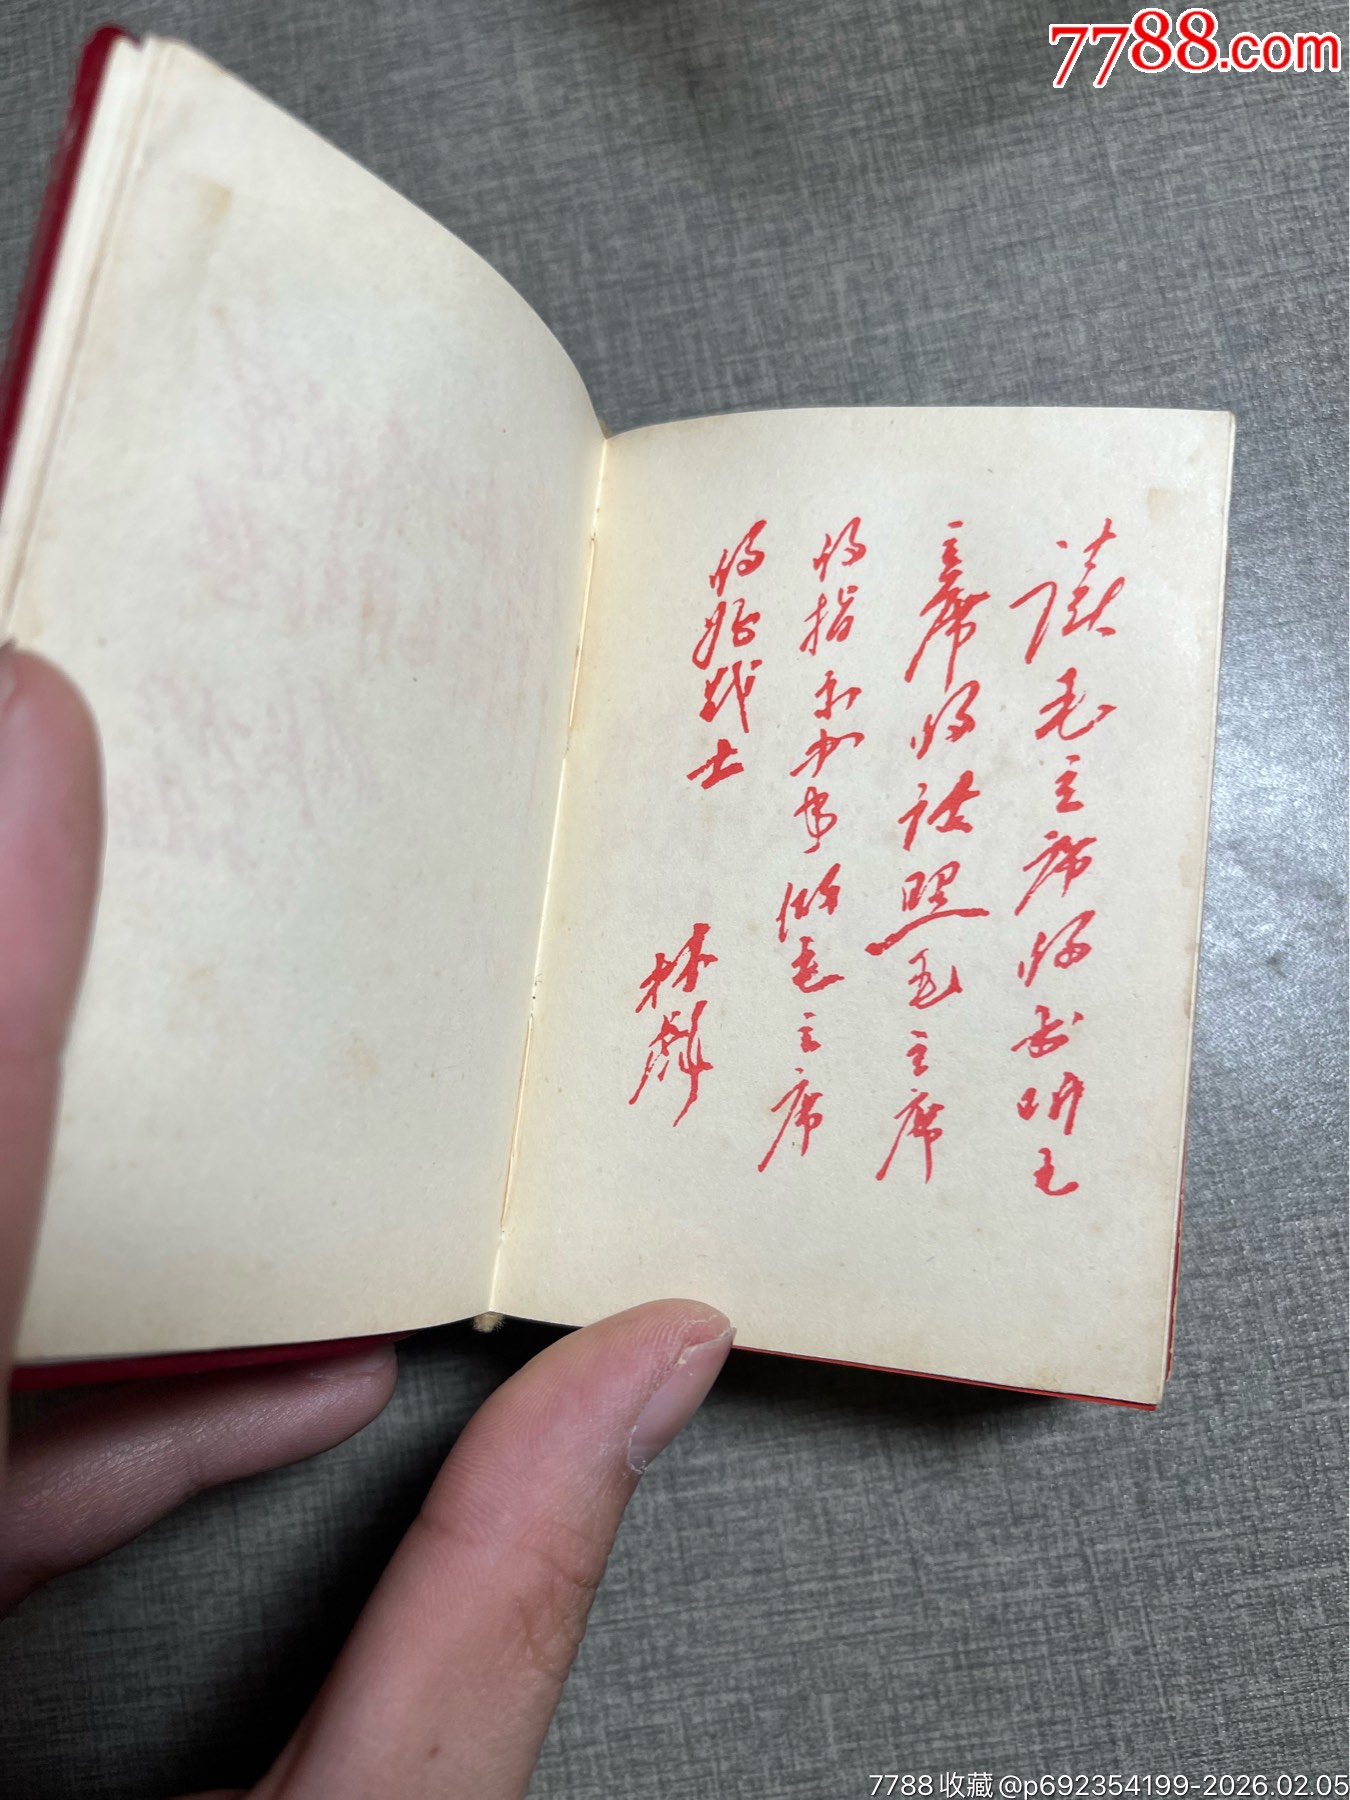 7788.com
读毛主席的书听毛
主席的话照毛主席
的指示办事做毛主席
的好战士
林彪
7788收藏@p692354199-2026.02.05